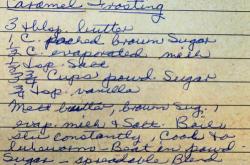 Caramel Frosting
3 tblsp. butter
1 C. packed brown Sugar
1/2 C. evaporated milk
1/4 tsp. Salt
2 3/4 Cups powd Sugar
3/4 tsp. vanilla
Melt butter, brown sug,
evap. milk & Salt. Boil
stir constantly. Cook to
lukewarm - Beat in powd
Sugar - spreadable Blend